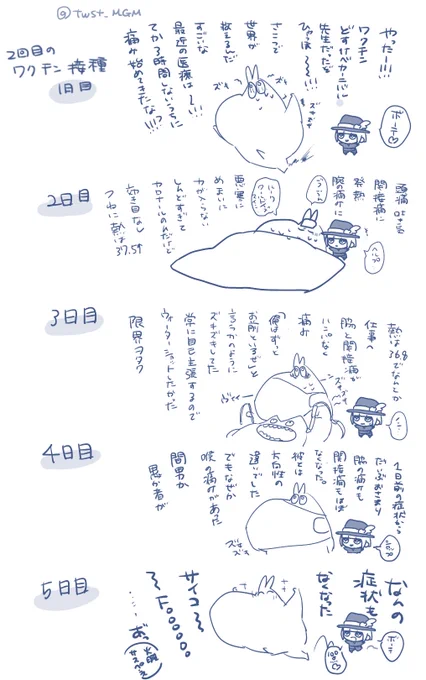 @twst_MGM
2回目の
ワクチン接種
1日目
やったー!!!
ワクチン
どすけべカーニバル
先生だったな
ひゃほ〜〜!!!
さっそく
世界が
救えるんだ
すごいな
最近の医療は〜!!!
てか3時間しないうちに
痛み始めてきたな!!!?
ボーテ♡
2日目
頭痛
関節痛に
発熱
腕の痛みに
悪寒に
めまいに
力が入らない
しんどすぎて
カロナールのんだけど
効き目なし
つねに熱は37.5℃
3日目
熱は36.8でなんとか
仕事へ
脇と関節が
ハンパなく
痛み
「俺はずっと
お前といるぜ」と
言うかのように
ズキズキしてた
常に自己主張するので
ウォーターショットしたかった
限界ヲタク
4日目
2日前の症状から
だいぶおさまり
脇の痛みも
関節痛もほぼ
なくなった。
彼とは
方向性の
違いでした
でもなぜか
喉の痛みがあった
間男か
愚か者が
5日目
なんの
症状も
なくなった
サイコ〜
〜Foooooo
ボーテ